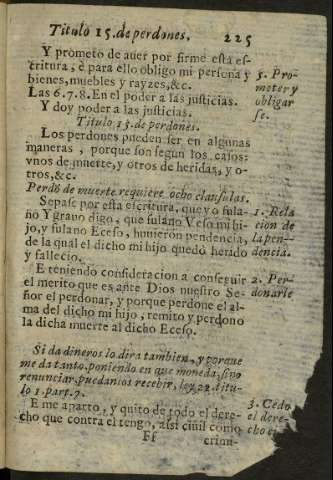 Titulo 15. de perdones. 225
Y prometo de auer por firme esta es-
critura, e para ello obligo mi persona y
bienes, muebles y rayzes, &c.
5. Pro-
meter y
obligar
se.
Las 6.7.8. En el poder a las justicias.
Y doy poder a las justicias.
Titulo 15. de perdones.
Los perdones pueden ser en algunas
maneras, porque son segun los casos:
vnos de muerte, y otros de heridas, y o-
tros, &c.
Perdō de muerte requiere ocho clausulas.
Sepase por esta escritura, que yo fula-
no Ygrano digo, que fulano Veso mi hi-
jo, y fulano Eceso, huuieron pendencia,
de la qual el dicho mi hijo quedó herido
y fallecio.
1. Rela
cion de
la pen-
dencia.
E teniendo consideracion a conseguir
el merito que es ante Dios nuestro Se-
ñor el perdonar, y porque perdone el al-
ma del dicho mi hijo, remito y perdono
la dicha muerte al dicho Eceso.
2. Per-
donarle
Si da dineros lo dira tambien, y porque
me da tanto, poniendo en que moneda, sino
renunciar, puedanlos recebir, ley 22. titu-
lo 1. part. 7.
E me aparto, y quito de todo el dere-
cho que contra el tengo, assi ciuil como
3. Cedo
el dere-
cho
Ff crimi-